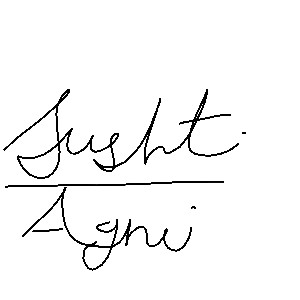 Jusht.
Agni